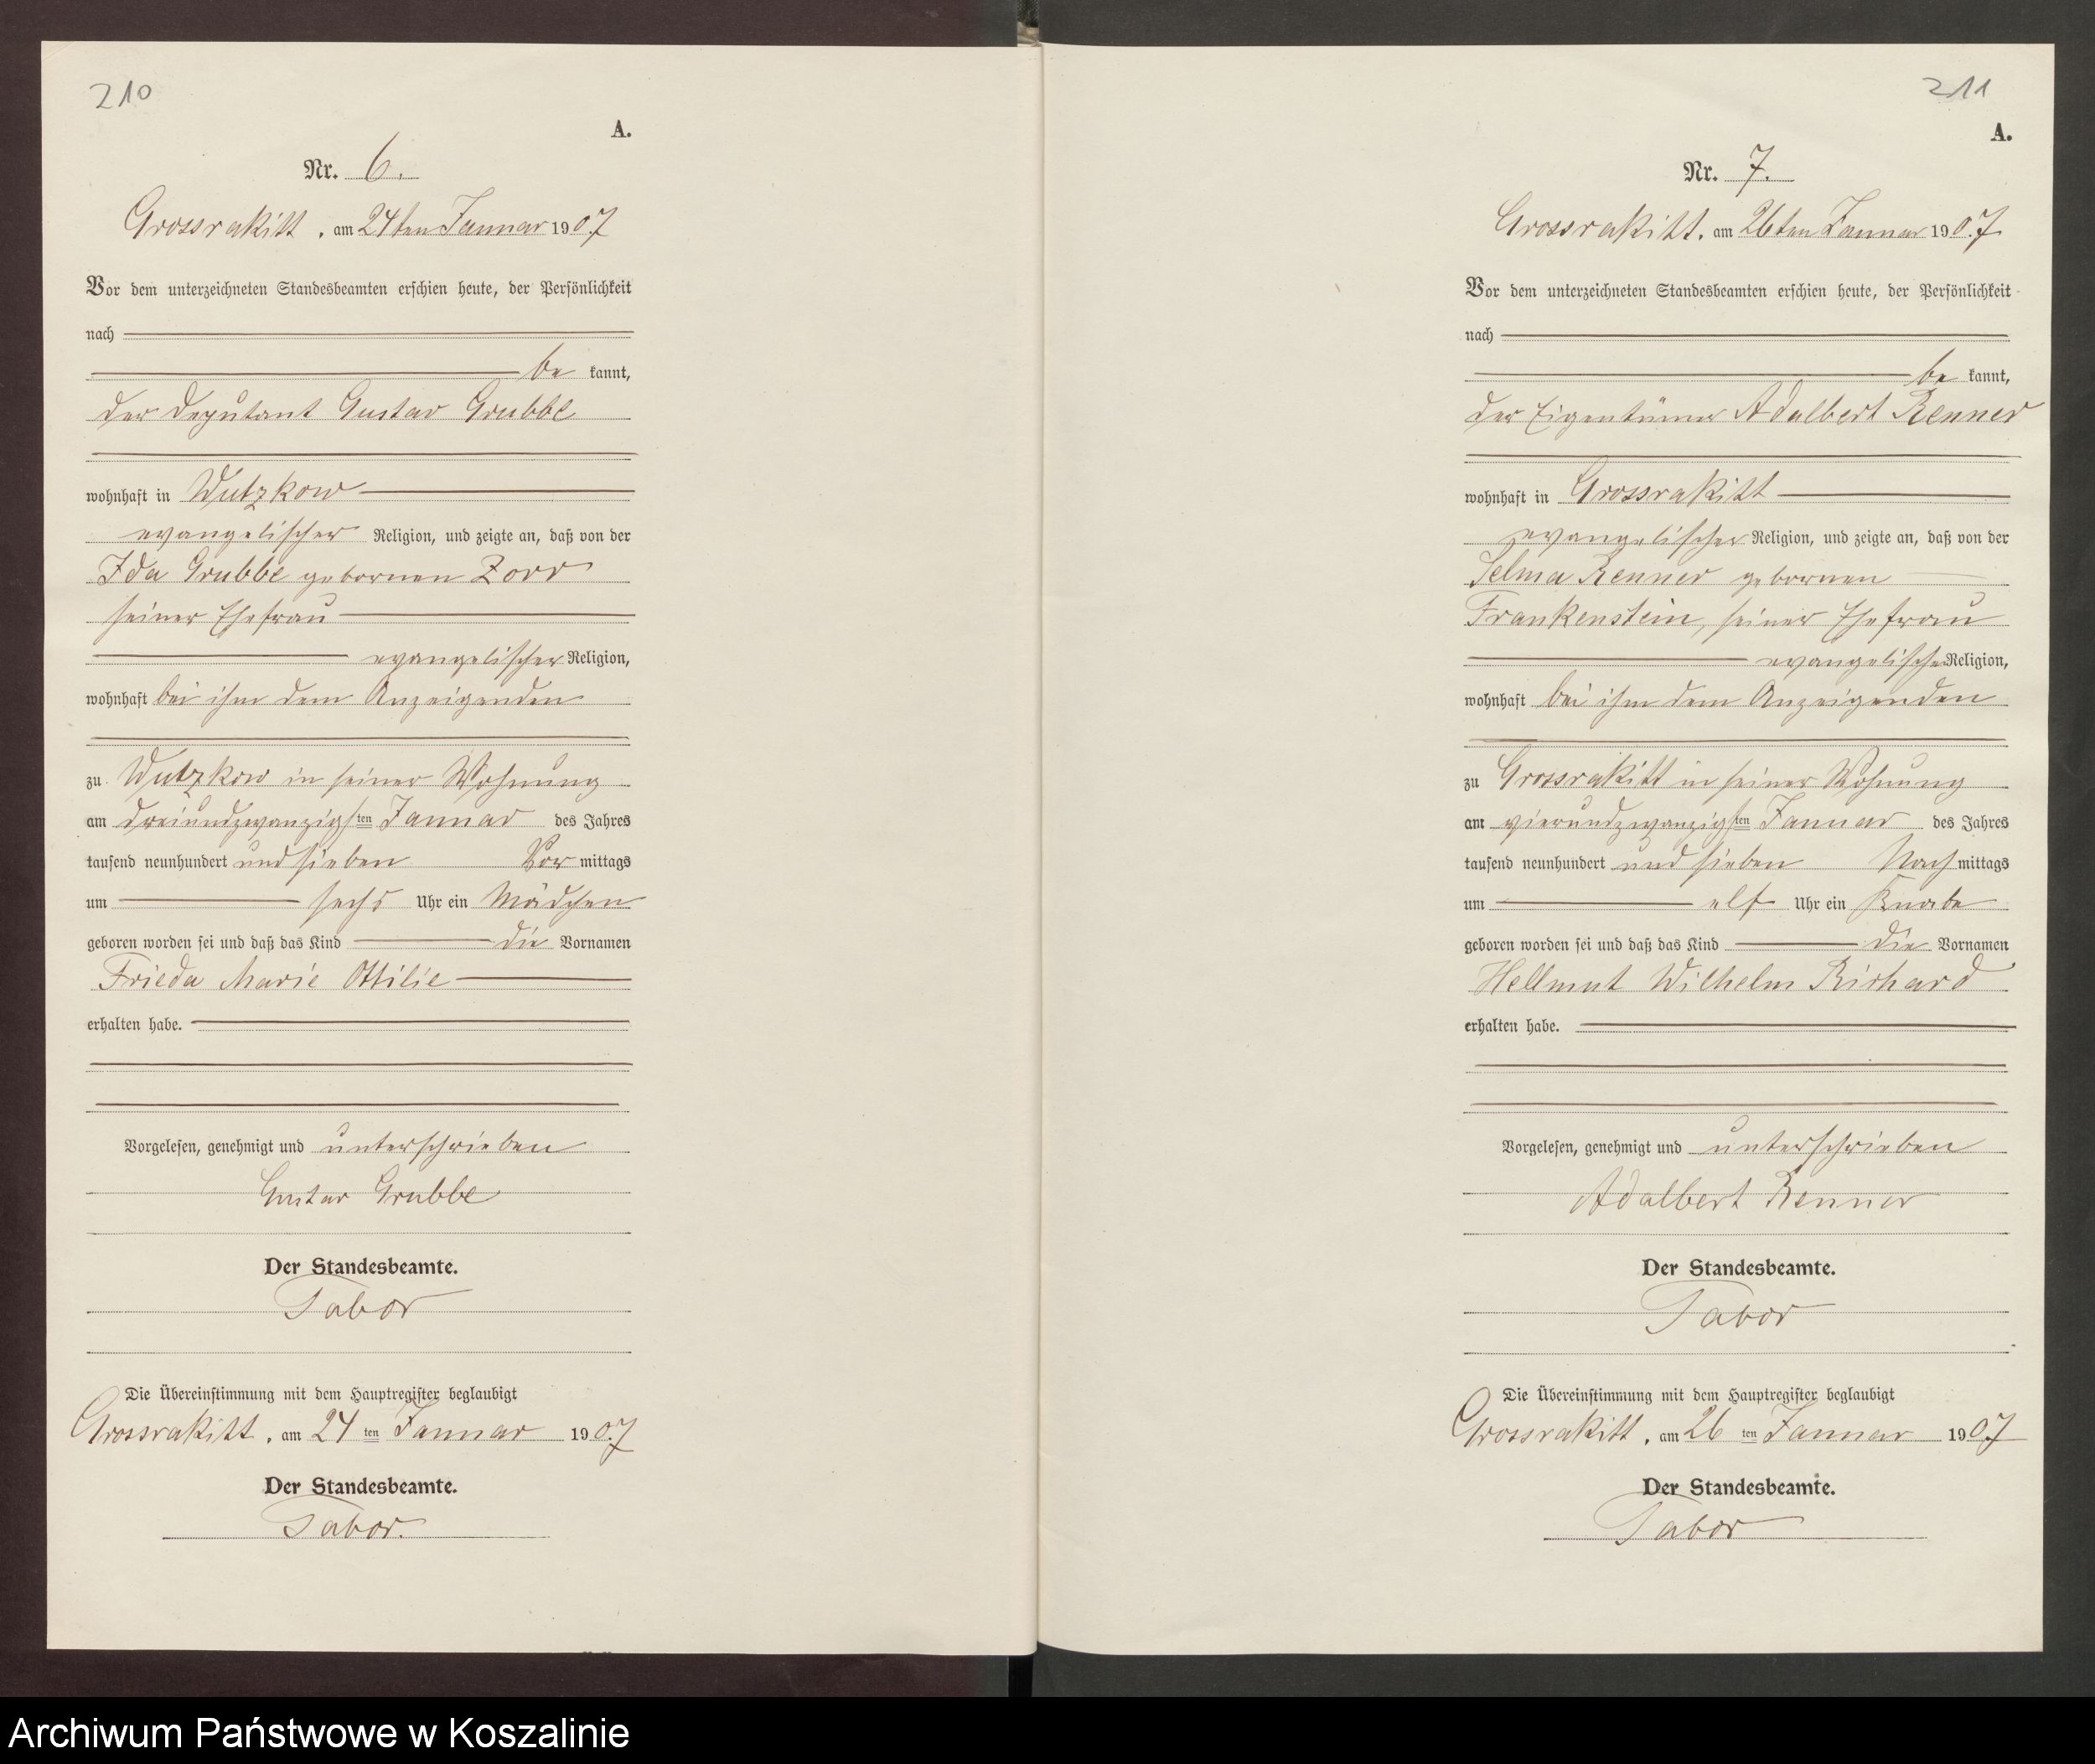 210
A.
Nr. 6.
Grossrakitt, am 24ten Januar 1907
Vor dem unterzeichneten Standesbeamten erschien heute, der Persönlichkeit
nach
be kannt,
der Deputant Gustav Grubbe
wohnhaft in Wutzkow
evangelischer Religion, und zeigte an, daß von der
Ida Grubbe gebornen Zorr
seiner Ehefrau
evangelischer Religion,
wohnhaft bei ihm dem Anzeigenden
zu Wutzkow in seiner Wohnung
am dreiundzwanzigsten Januar des Jahres
tausend neunhundert und sieben Vor mittags
um sechs Uhr ein Mädchen
geboren worden sei und daß das Kind die Vornamen
Frieda Marie Ottilie
erhalten habe.
Vorgelesen, genehmigt und unterschrieben
Gustav Grubbe
Der Standesbeamte.
Tabor
Die Übereinstimmung mit dem Hauptregister beglaubigt
Grossrakitt, am 24 ten Januar 1907
Der Standesbeamte.
Tabor.
211
A.
Nr. 7.
Grossrakitt, am 26ten Januar 1907
Vor dem unterzeichneten Standesbeamten erschien heute, der Persönlichkeit
nach
be kannt,
der Eigentümer Adalbert Renner
wohnhaft in Grossrakitt
evangelischer Religion, und zeigte an, daß von der
Selma Renner gebornen
Frankenstein, seiner Ehefrau
evangelischer Religion,
wohnhaft bei ihm dem Anzeigenden
zu Grossrakitt in seiner Wohnung
am vierundzwanzigsten Januar des Jahres
tausend neunhundert und sieben Nach mittags
um elf Uhr ein Knabe
geboren worden sei und daß das Kind die Vornamen
Hellmut Wilhelm Richard
erhalten habe.
Vorgelesen, genehmigt und unterschrieben
Adalbert Renner
Der Standesbeamte.
Tabor
Die Übereinstimmung mit dem Hauptregister beglaubigt
Grossrakitt, am 26 ten Januar 1907
Der Standesbeamte.
Tabor
Archiwum Państwowe w Koszalinie